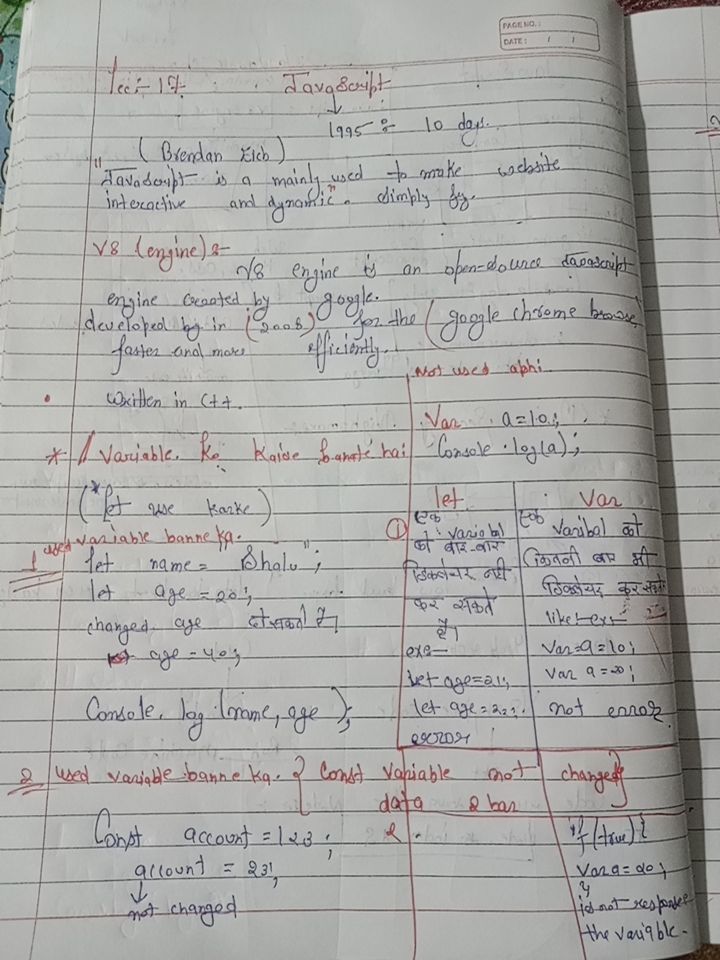 PAGE NO.:
DATE: / /
Lec:- 17 JavaScript
1995 10 days.
(Brendan Eich)
"JavaScript is a mainly used to make website
interactive and dynamic". simply
V8 (engine):-
V8 engine is an open-source Javascript
engine created by google.
developed by in (2008) for the (google chrome browse
faster and more efficiently.
Written in C++.
Not used aphi
Var a=10;
Console.log(a);
* // Variable. Ko Kaise banate hai
(*let use karke)
1 used variable banne ka.
let name = Shalu";
let age = 20;
changed age हो सकता है।
age = 40;
Console.log (name, age);
let
① एक variabal
को बार-बार
डिक्लेयर नही
कर सकते
है।
exe-
let age=21;
let age=22;
error
Var
एक Varibal को
कितनी बार भी
डिक्लेयर कर सकते
like:-ex-
Var=a=10;
Var a=20;
not error
2 used variable banne ka. { Const Variable not changed}
data 2 bar
Const account = 123;
account = 23;
not changed
2.
if (true) {
Var a = 20;
}
is not response
the variable.